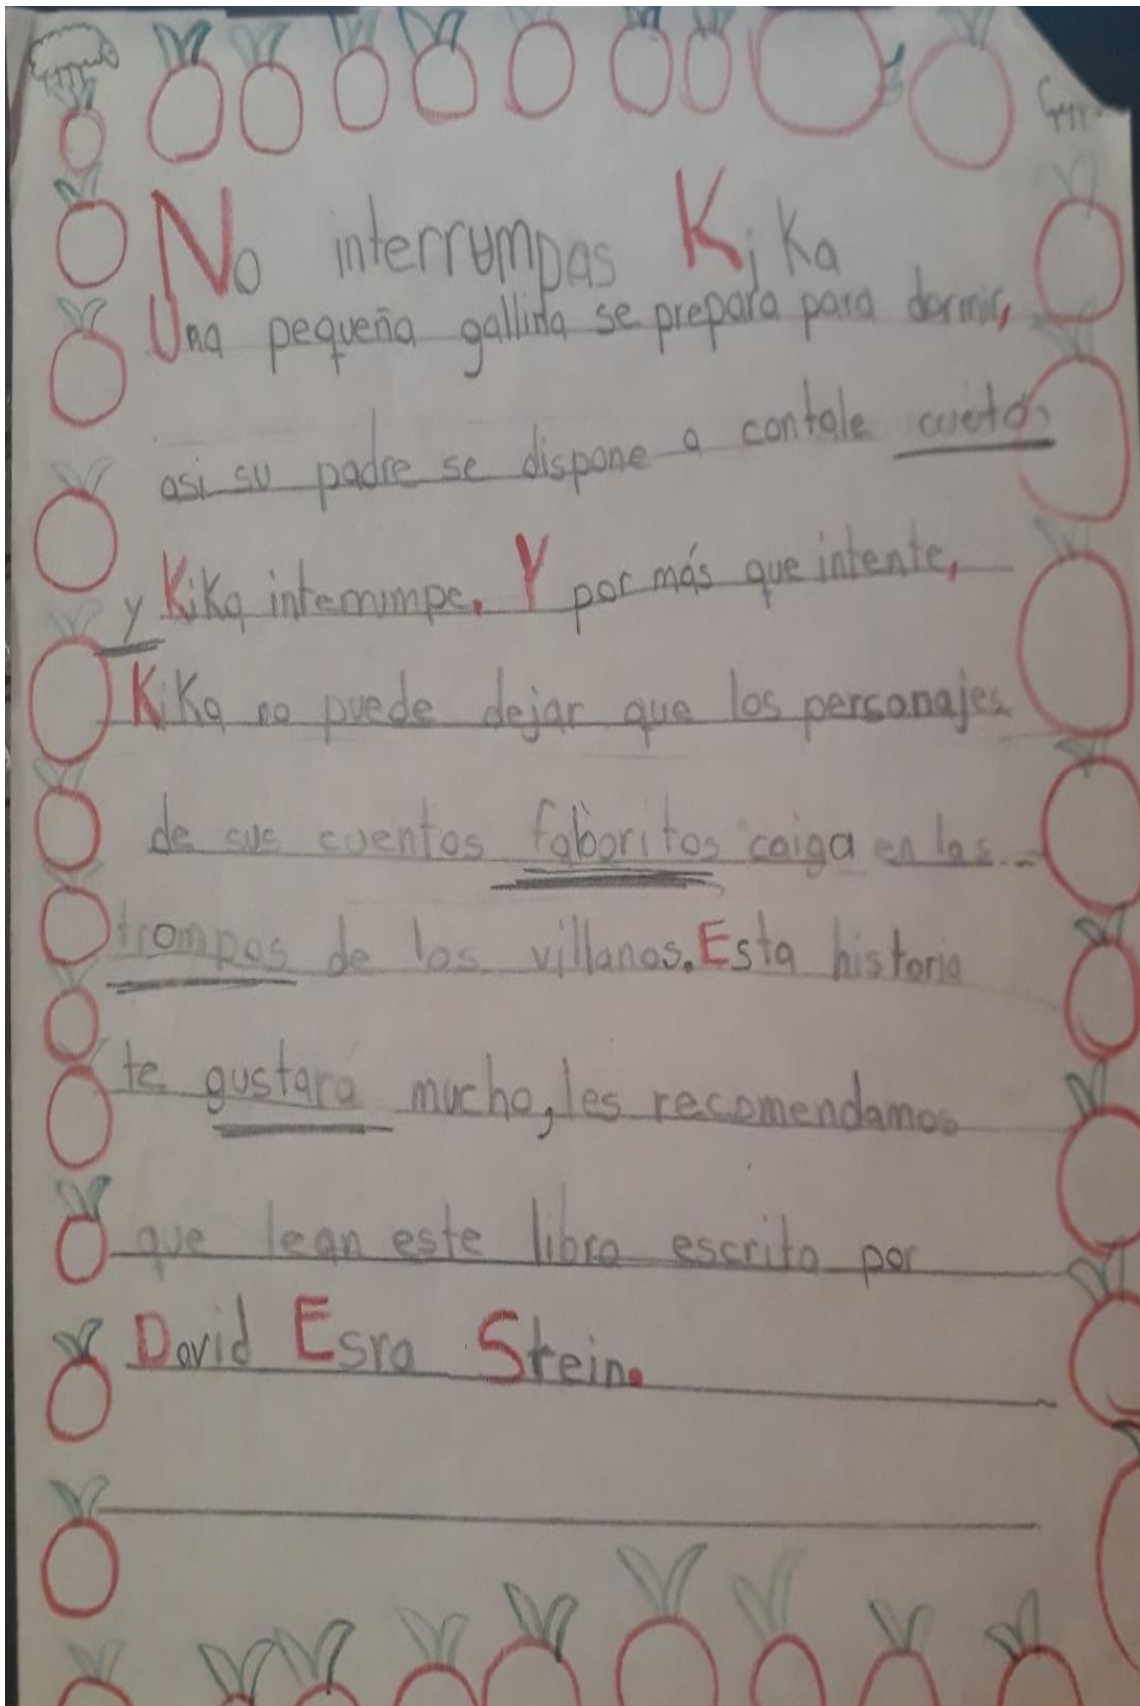 No interrumpas Kika
Una pequeña gallina se prepara para dormir,
asi su padre se dispone a contale cueto
y Kika interrumpe. Y por más que intente,
Kika no puede dejar que los personajes
de sus cuentos faboritos caiga en las
trompas de los villanos. Esta historia
te gustara mucho, les recomendamos
que lean este libro escrito por
David Esra Stein.